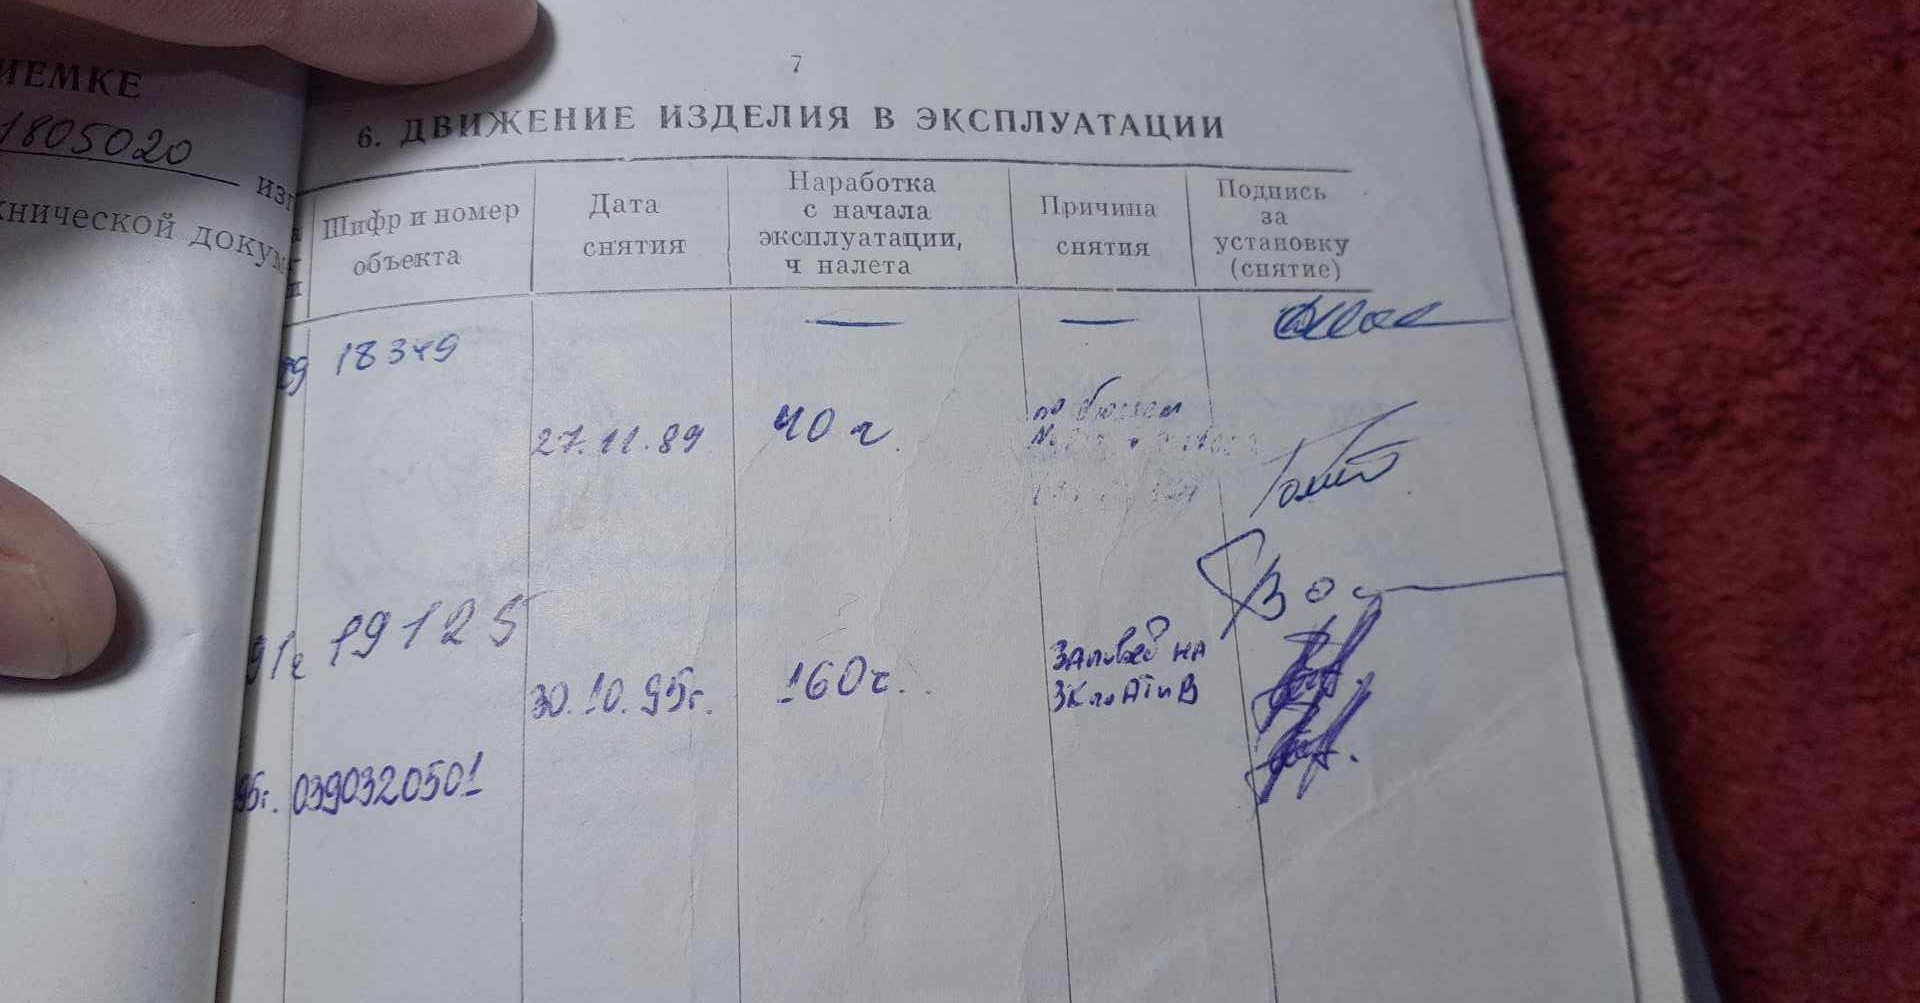 ИЕМКЕ
1805020
изг
хнической докум
7
6. ДВИЖЕНИЕ ИЗДЕЛИЯ В ЭКСПЛУАТАЦИИ
Шифр и номер
объекта
Дата
снятия
Наработка
с начала
эксплуатации,
ч налета
Причина
снятия
Подпись
за
установку
(снятие)
89 18349 — —
27.11.89 40 ч. по
91г 19125
30.10.95г. 160ч. на
95г. 0390320501